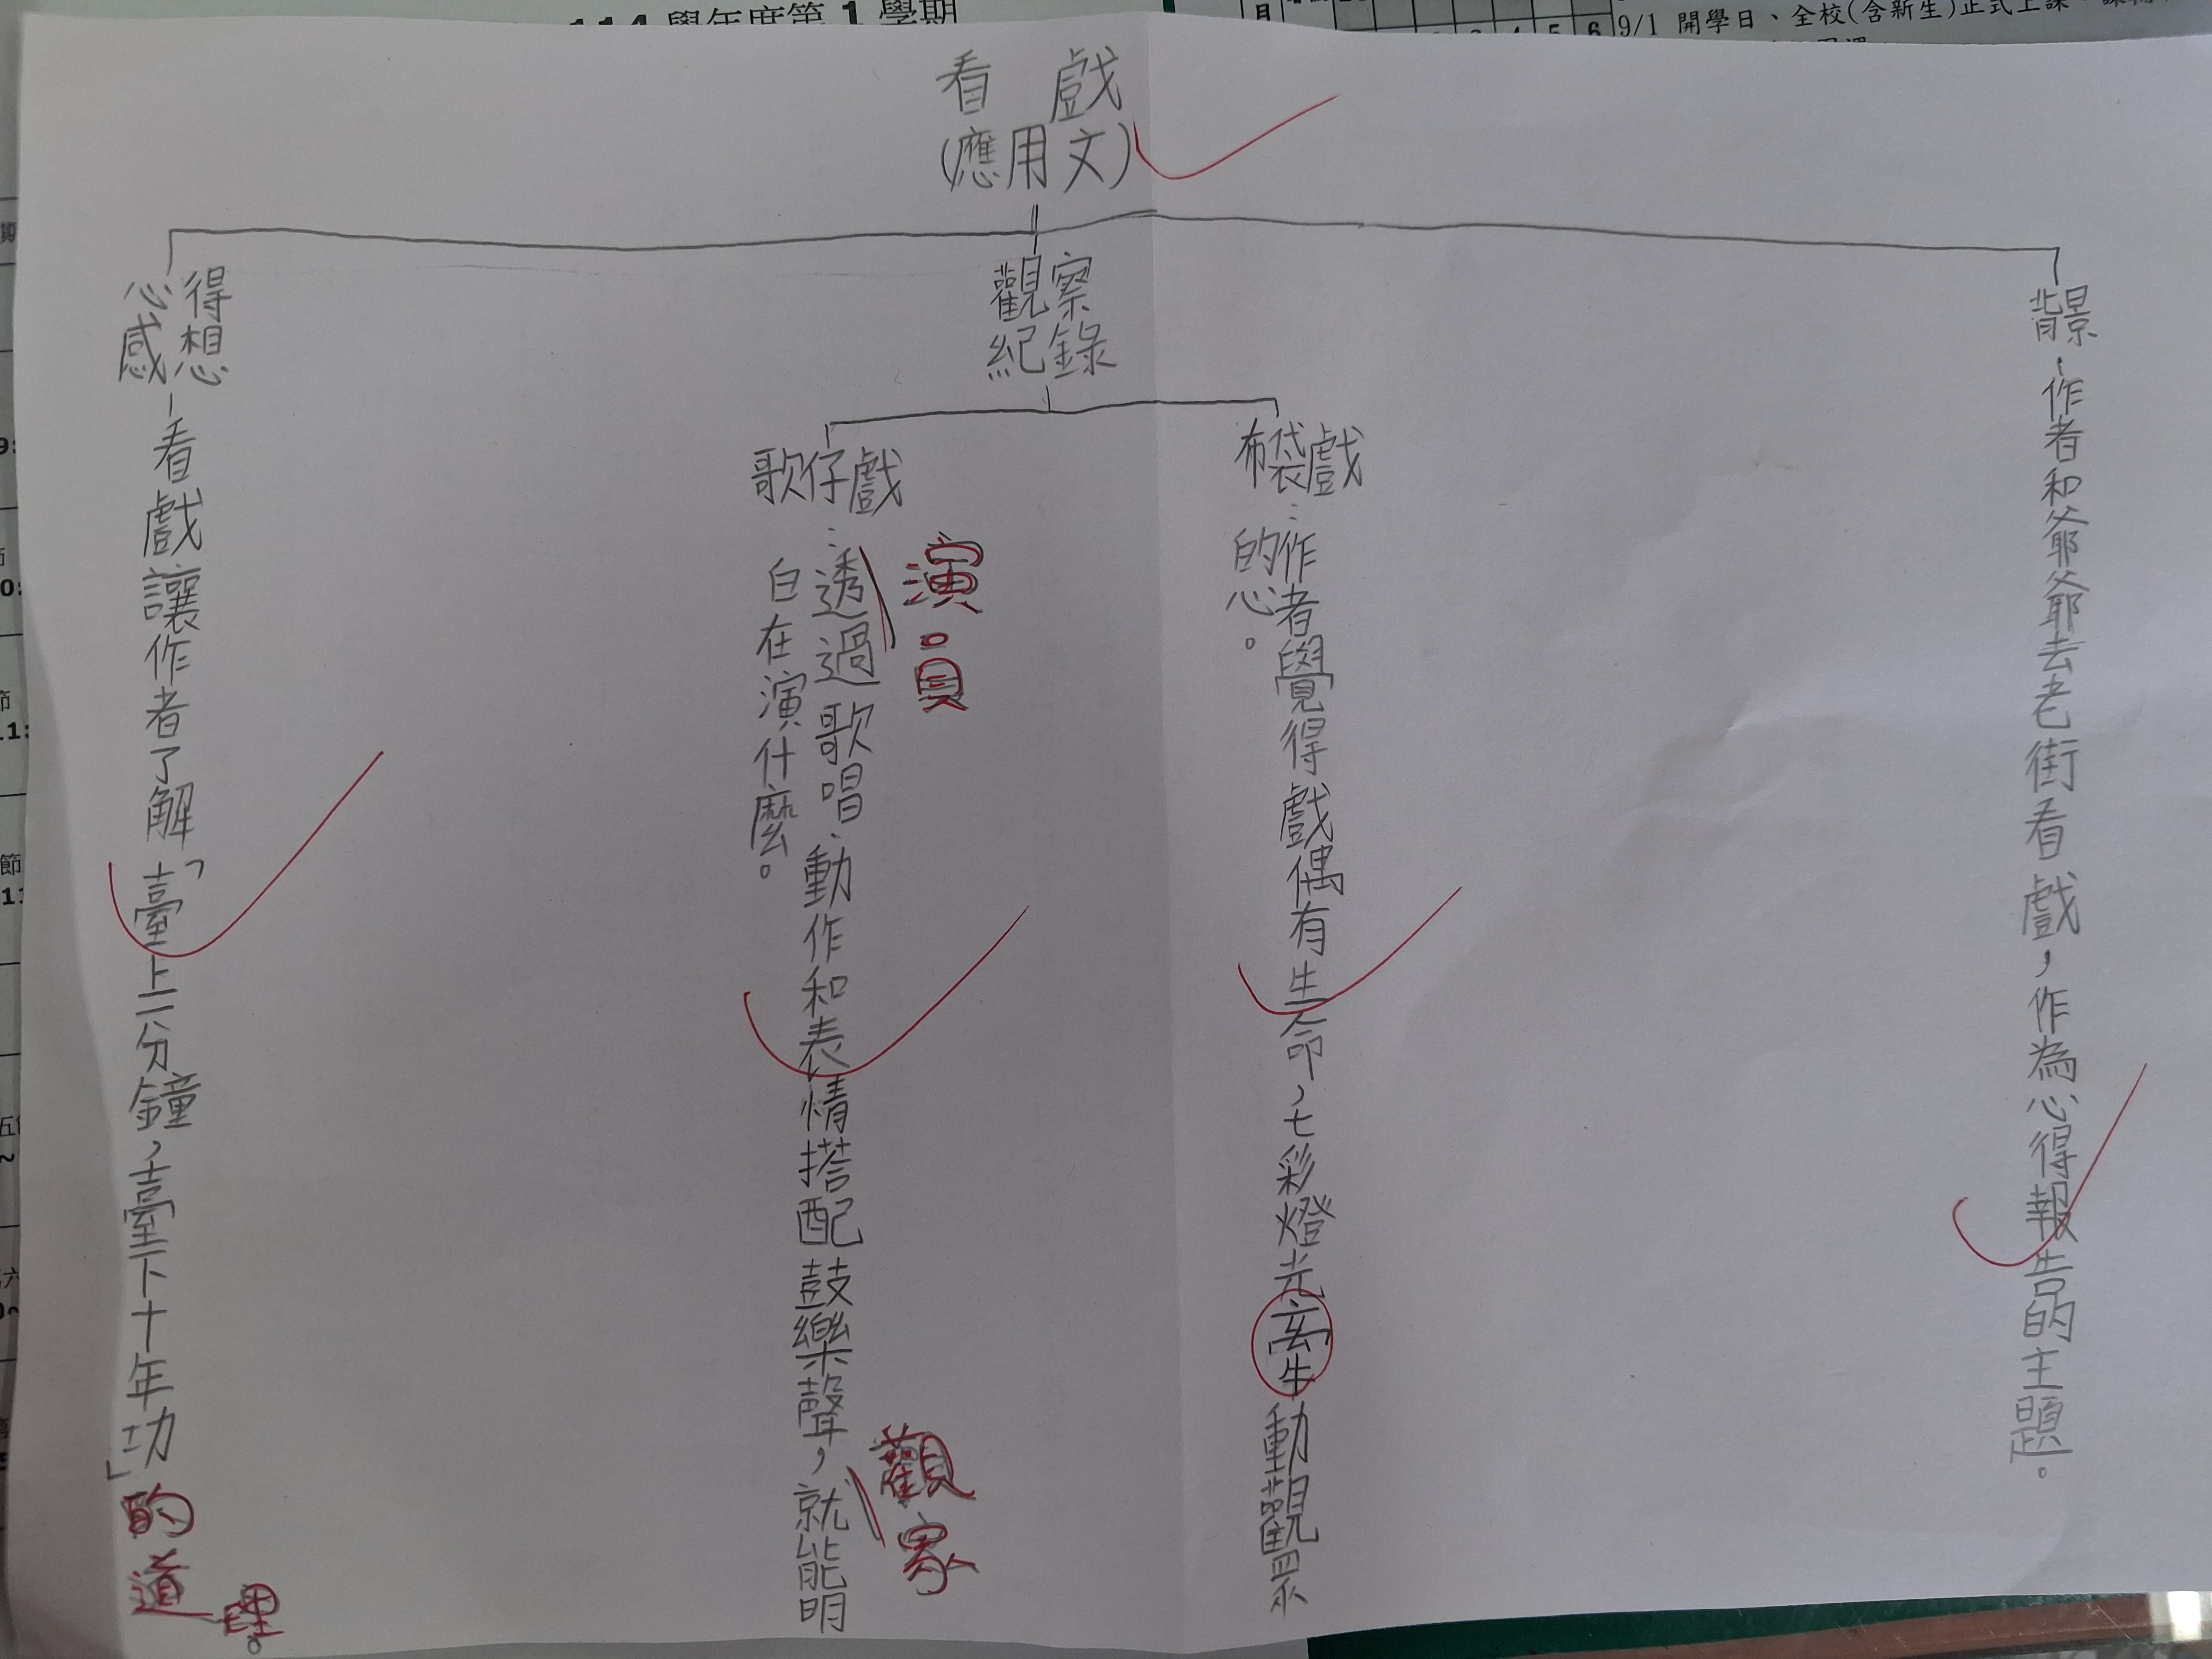 114學年度第1學期
9/1 開學日、全校(含新生)正式上課、
3 4 5 6
看戲
(應用文)
背景:作者和爺爺去老街看戲,作為心得報告的主題。
觀察
紀錄
布袋戲:作者覺得戲偶有生命,七彩燈光牽動觀眾
的心。
歌仔戲:演員透過歌唱、動作和表情搭配鼓樂聲,觀眾就能明
白在演什麼。
心得
感想
看戲讓作者了解「臺上一分鐘,臺下十年功」的道理。